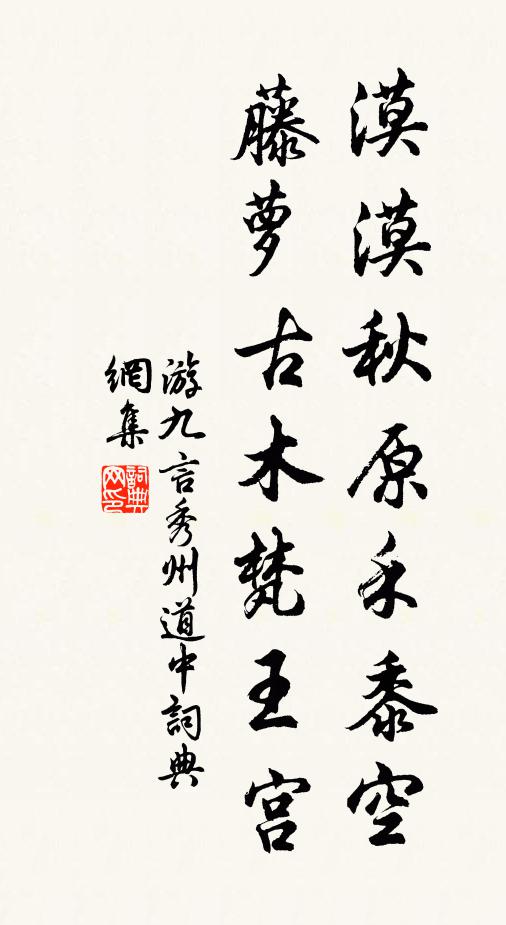 漠漠秋原禾黍空
藤萝古木梵王宫
游九言秀州道中詞典
網集
詞典网印